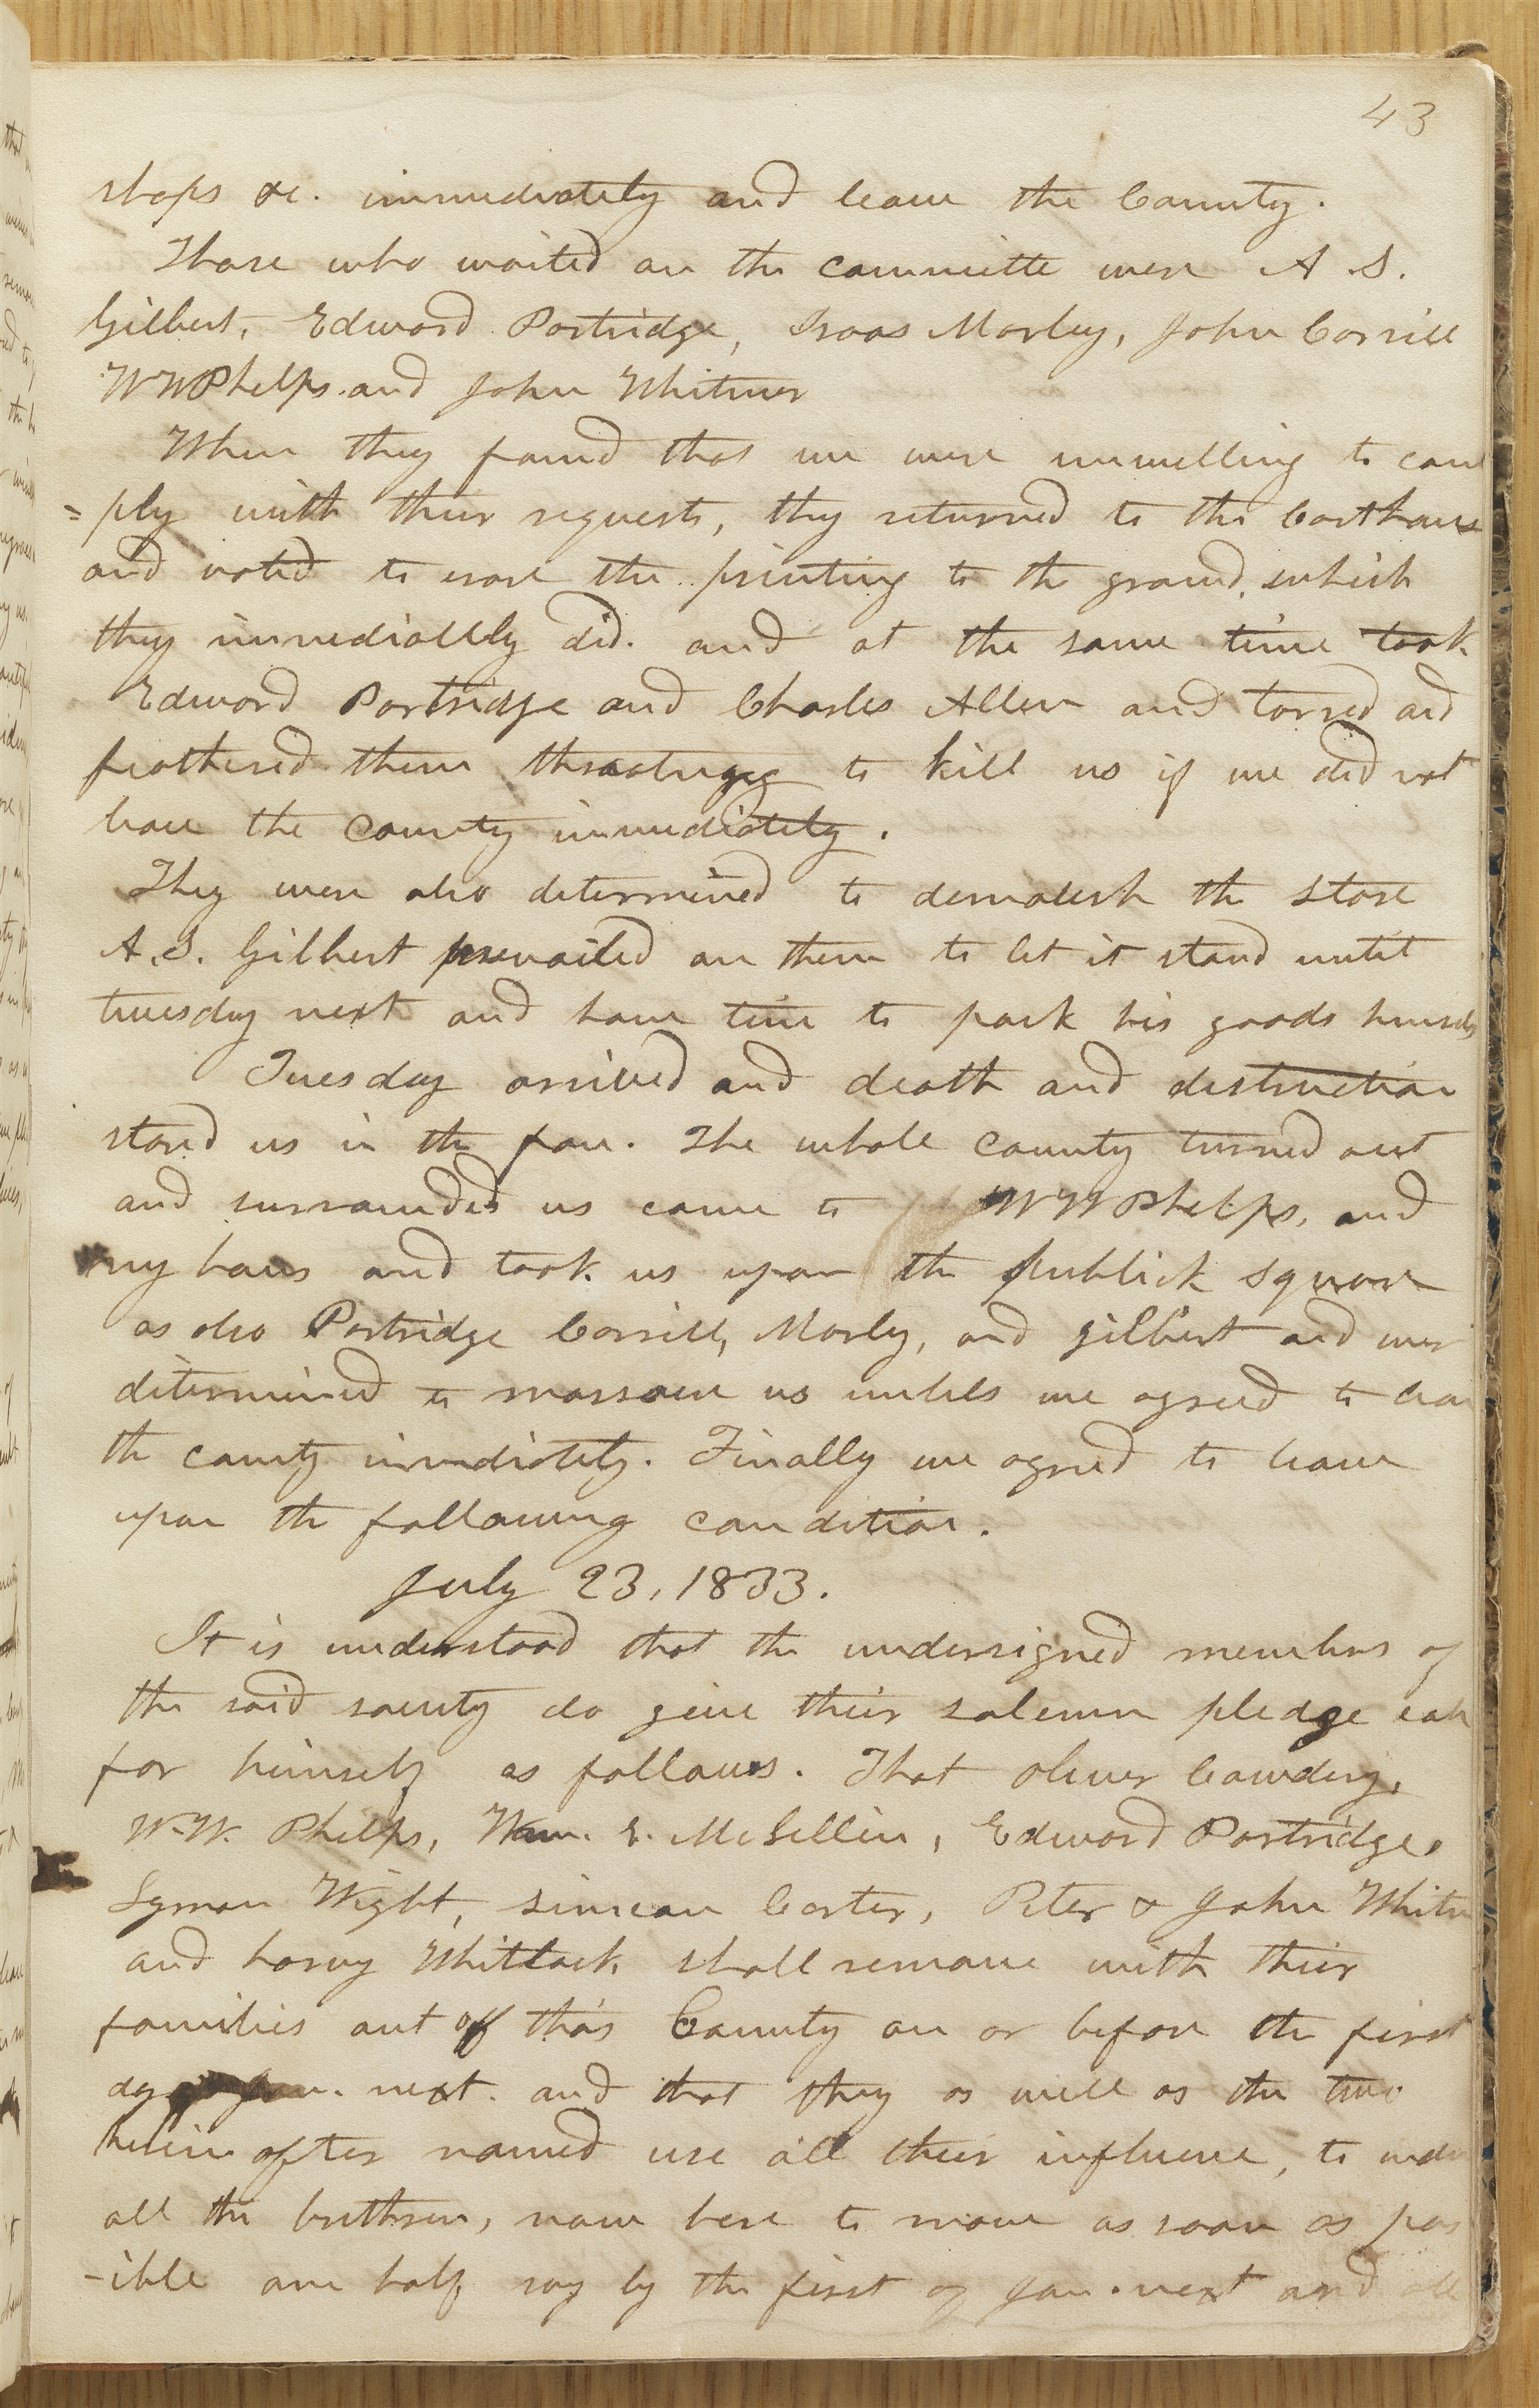 43
shops &c. immediately and leave the County.
Those who waited on the committe were A S.
Gilbert, Edward Partridge, Isaas Morley, John Corrill
W W Phelps. and John Whitmer
When they found that we were unwelling to com
=ply with their requests, they returned to the Corthouse
and voted to erase the printing to the ground, which
they immediatlely did. and at the same time took
Edward Partridge and Charles Allen and tarred and
feathered them threatnigg to kill us if we did not
leave the county immediately.
They were also determined to demolesh the Store
A. S. Gilbert prevailed on them to let it stand until
tuesday next and have time to pack his goods himself
Tuesday arrived and death and distruction
stared us in the face. The whole county turned out
and surrounded us came to W W Phelps, and
my hous and took us upon the publick square
as also Partridge Corrill, Morly, and gilbert and were
determined to massacre us unlels we agreed to leave
the county immdiately. Finally we agreed to leave
upon the following condition.
July 23, 1833.
It is understood that the undersigned members of
the said society do give their solemn pledge each
for himself as follows. That oliver Cowdery,
W.W. Phelps, Wm. E. McLellin, Edward Partridge,
Lyman Wight, simeon Carter, Peter & John Whitm
and harvy Whitlock, shall remove with their
families out off this County on or before the first
day of Jan. next. and that they as well as the two
herein after named use all their influence, to induce
all the brethren, now here to move as soon as pos
-ible one half, say by the first of Jan. next and all